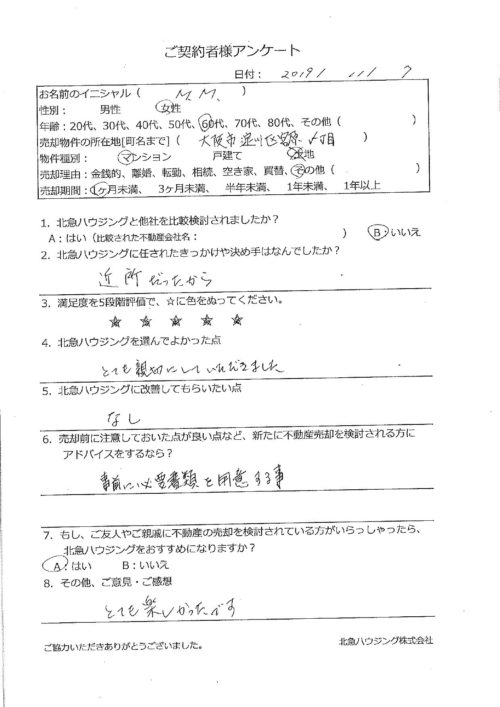 ご契約者様アンケート
日付： 2019/ 11/ 7
お名前のイニシャル（ M.M. ）
性別： 男性 女性
年齢：20代、30代、40代、50代、60代、70代、80代、その他（ ）
売却物件の所在地[町名まで]（ 大阪市淀川区宮原 丁目 ）
物件種別： マンション 戸建て 土地
売却理由：金銭的、離婚、転勤、相続、空き家、買替、その他（ ）
売却期間：1ヶ月未満、 3ヶ月未満、 半年未満、 1年未満、 1年以上
1．北急ハウジングと他社を比較検討されましたか？
A：はい（比較された不動産会社名： ） B：いいえ
2．北急ハウジングに任されたきっかけや決め手はなんでしたか？
近所だったから
3．満足度を5段階評価で、☆に色をぬってください。
★ ★ ★ ★ ★
4．北急ハウジングを選んでよかった点
とても親切にしていただきました
5．北急ハウジングに改善してもらいたい点
なし
6．売却前に注意しておいた点が良い点など、新たに不動産売却を検討される方に
アドバイスをするなら？
事前に必要書類を用意する事
7．もし、ご友人やご親戚に不動産の売却を検討されている方がいらっしゃったら、
北急ハウジングをおすすめになりますか？
A：はい B：いいえ
8．その他、ご意見・ご感想
とても楽しかったです
ご協力いただきありがとうございました。 北急ハウジング株式会社